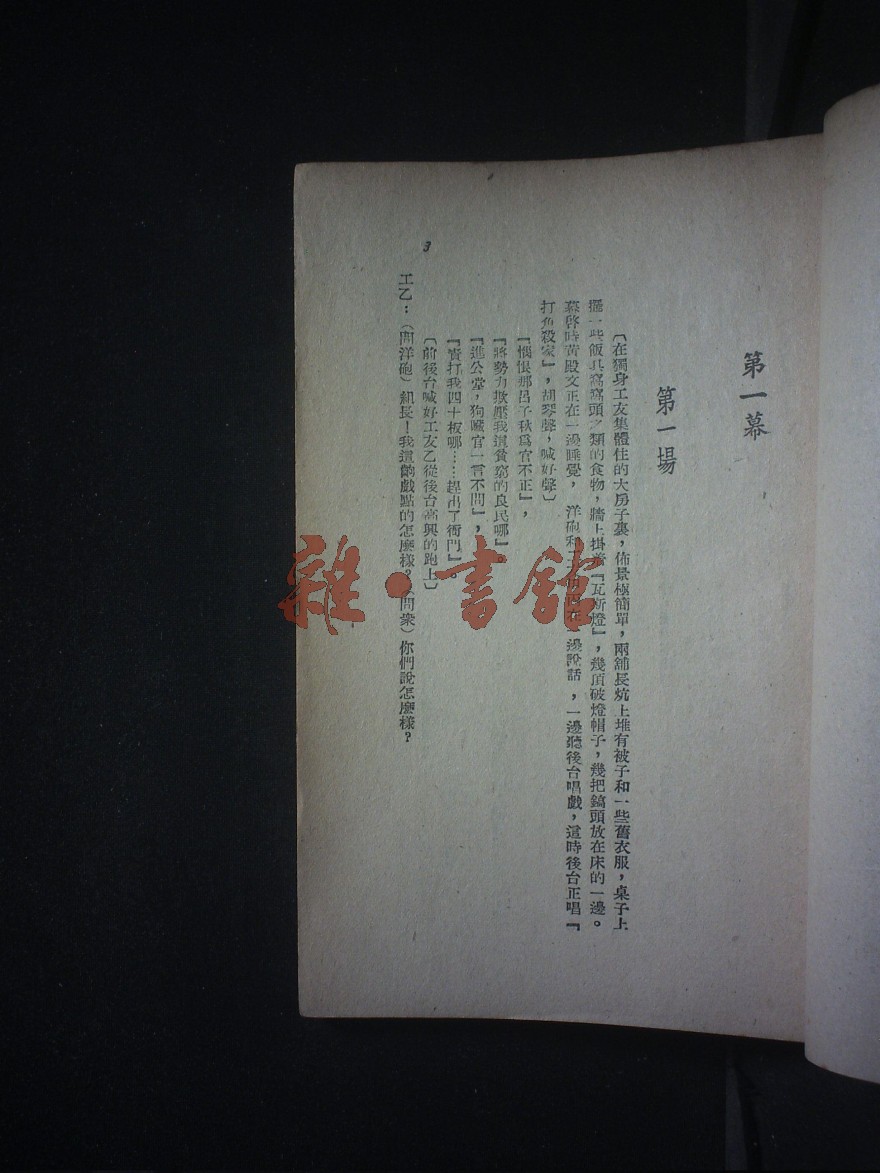 第一幕
第一場
〔在獨身工友集體住的大房子裏，佈景極簡單，兩舖長炕上堆有被子和一些舊衣服，桌子上
擺一些飯具窩窩頭之類的食物，牆上掛着『瓦斯燈』，幾頂破燈帽子，幾把鎬頭放在床的一邊。
幕啓時黃殿文正在一邊睡覺，洋砲和工 邊說話，一邊聽後台唱戲，這時後台正唱『
打魚殺家』，胡琴聲，喊好聲〕
『惱恨那呂子秋爲官不正』，
『將勢力欺壓我這貧窮的良民哪』。
『進公堂，狗贓官一言不問』，
『責打我四十板哪……趕出了衙門』。
〔前後台喊好工友乙從後台高興的跑上〕
工乙：（問洋砲）組長！我這齣戲點的怎麼樣？（問衆）你們說怎麼樣？
3
雜·書館